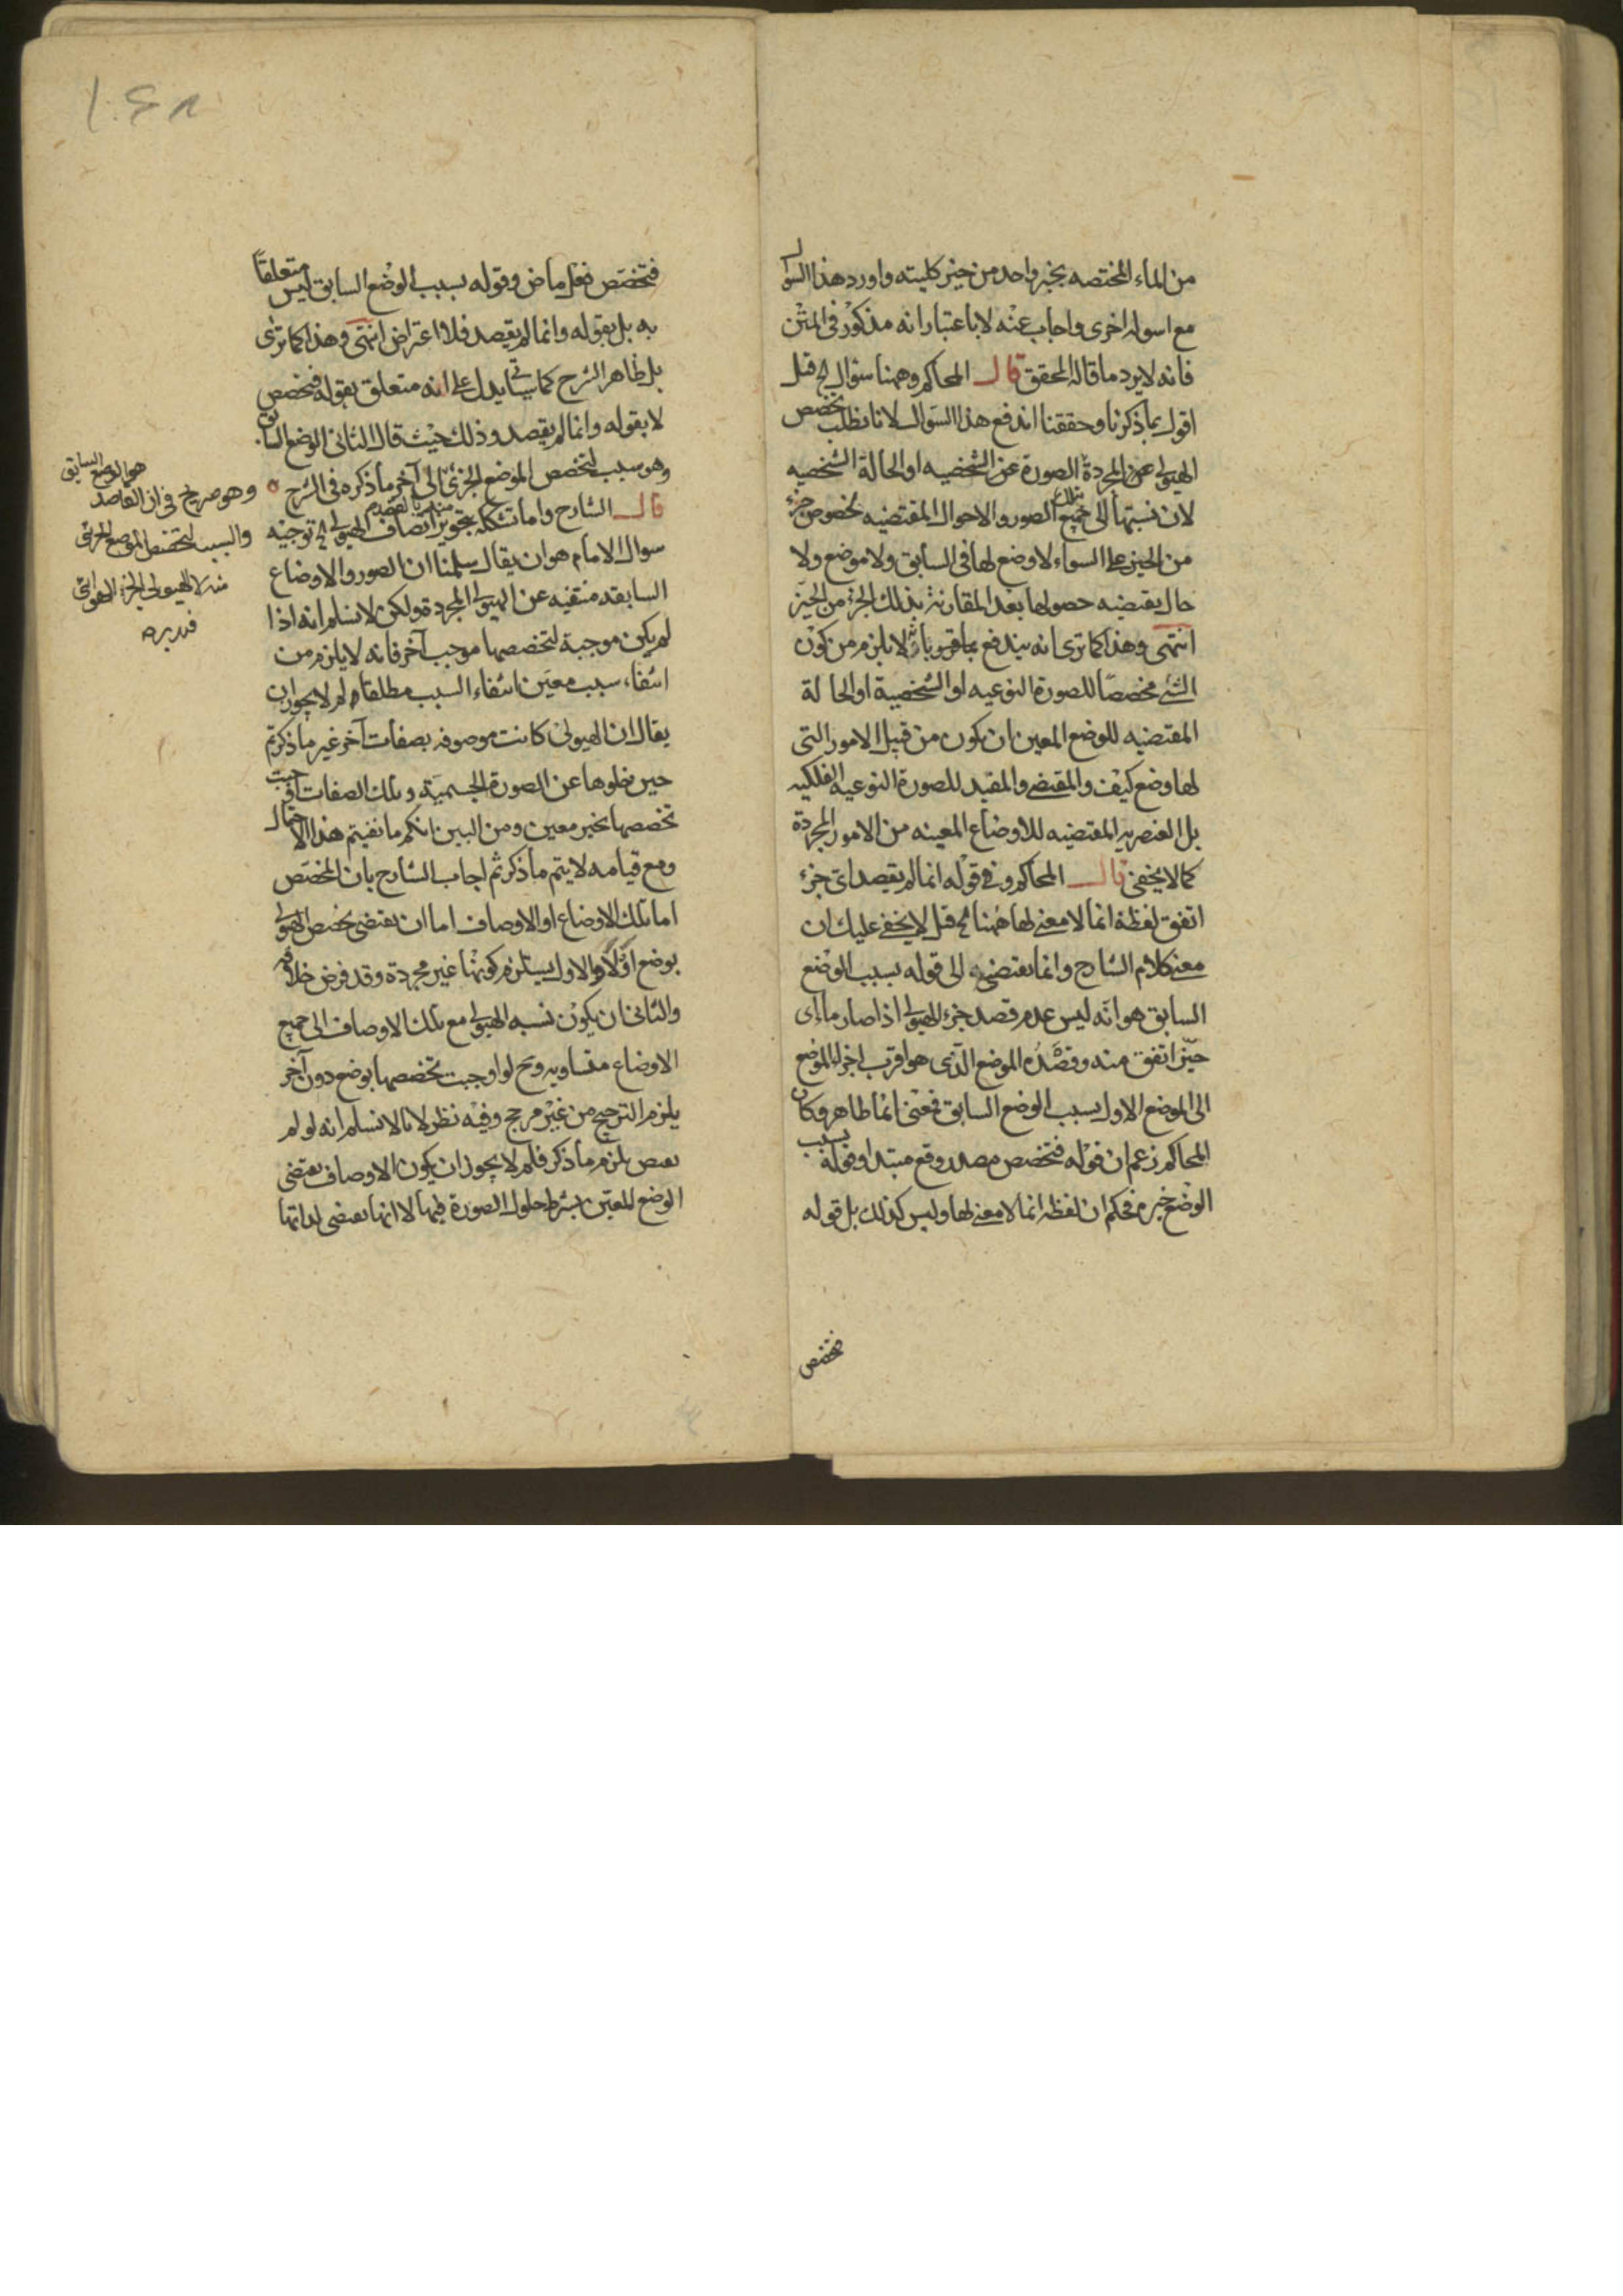 من الماء المختصه بخيز واحد من حيز كليته واورد هذا السوال
مع اسوله اخرى واجاب عنه لا باعتبار انه مذكور فى المتن
فانه لا يرد ما قاله المحقق قال المحاكم وههنا سؤال الخ قيل
اقول بما ذكرنا وحققنا اندفع هذا السؤال لانا نطلب تخصص
الهيولى المجردة الصورة عن الشخصيه او الحالة الشخصيه
لان نسبتها الى جميع تلك الصور والاحوال المقتضيه لخصوص جزء
من الحيز على السواء لا وضع لها فى السابق ولا موضع ولا
حال يقتضيه حصولها بعد المقارنة بذلك الجزء من الحيز
انتهى وهذا كما ترى انه يندفع بما لا يلزم من كون
الشئ مخصصا للصورة النوعيه او الشخصية او الحالة
المقتضيه للوضع المعين ان يكون من قبيل الامور التى
لها وضع كيف والمقتضى والمقيد للصورة النوعيه الفلكيه
بل العنصريه المقتضيه للاوضاع المعينه من الامور المجردة
كما لا يخفى قال المحاكم وفى قوله انما لم يقصد اى جزء
اتفق لفظة انما لا معنى لها ههنا الخ قيل لا يخفى عليك ان
معنى كلام الشارح وانما يقتضى الى قوله بسبب الوضع
السابق هو انه ليس عدم قصد جزء الهيولى اذا صار ماء اى
حيز اتفق منه وقصده الموضع الذى هو اقرب اجزاء الموضع
الى الموضع الاول بسبب الوضع السابق فمعنى انما ظاهر وكان
المحاكم زعم ان قوله فتخصص مصدر وقع مبتدا وقوله بسبب
الوضع خبره فحكم ان لفظه انما لا معنى لها وليس كذلك بل قوله
فتخصص
فتخصص فعل ماض وقوله بسبب الوضع السابق ليس متعلقاً
به بل بقوله وانما لم يقصد فلا اعتراض انتهى وهذا كما ترى
بل ظاهر الشرح كما سيأتى يدل على انه متعلق بقوله فتخصص
لا بقوله وانما لم يقصد وذلك حيث قال الثانى الوضع السابق
وهو سبب لتخصص الموضع الجزئى الى آخر ما ذكره فى الشرح
قال الشارح واما تشككه بتجويز اتصاف الهيولى الخ توجيه
سوال الامام هو ان يقال سلمنا ان الصور والاوضاع
السابقه منتفيه عن الهيولى المجردة ولكن لا نسلم انه اذا
لم يكن موجبة لتخصصها موجب آخر فانه لا يلزم من
انتفاء سبب معين انتفاء السبب مطلقا ولم لا يجوز ان
يقال ان الهيولى كانت موصوفه بصفات آخر غير ما ذكرتم
حين خلوها عن الصورة الجسمية وتلك الصفات اوجبت
تخصصها بحيز معين ومن البين انكم ما نفيتم هذا الاحتمال
ومع قيامه لا يتم ما ذكر ثم اجاب الشارح بان المختص
اما تلك الاوضاع او الاوصاف اما ان يقتضى تخصص الهيولى
بوضع اولاً والاول يستلزم كونها غير مجردة وقد فرض خلافه
والثانى ان يكون نسبه الهيولى مع تلك الاوصاف الى جميع
الاوضاع متساويه وح لو اوجبت تخصصها بوضع دون آخر
يلزم الترجيح من غير مرجح وفيه نظر لانا لا نسلم انه لو لم
يلزم ما ذكر فلم لا يجوز ان يكون الاوصاف يقتضى
الوضع المعين بشرط حلول الصورة فيها لا انها يقتضى لذاتها
هو الوضع السابق
وهو صريح فى ان القاصد
والسبب لتخصص الموضع الجزئى
منه لا الهيولى الجزء الهوائى
فتدبره
١٠٤٨